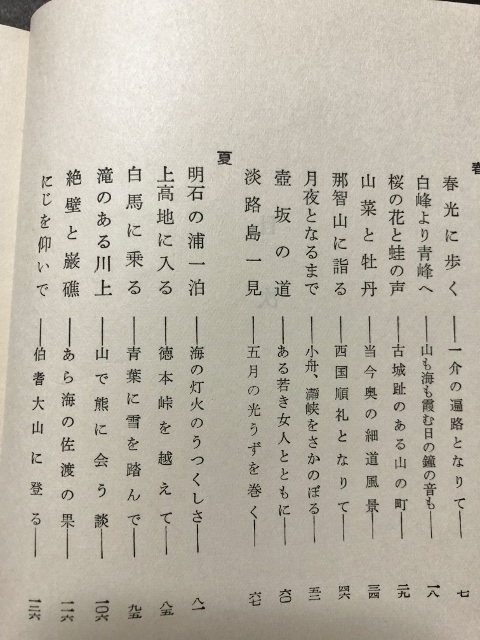 春
春光に歩く——一介の遍路となりて——七
白峰より青峰へ——山も海も霞む日の鐘の音も——一八
桜の花と蛙の声——古城趾のある山の町——二九
山菜と牡丹——当今奥の細道風景——三四
那智山に詣る——西国順礼となりて——四六
月夜となるまで——小舟、瀞峡をさかのぼる——五二
壺坂の道——ある若き女人とともに——六〇
淡路島一見——五月の光うずを巻く——六七
夏
明石の浦一泊——海の灯火のうつくしさ——八一
上高地に入る——徳本峠を越えて——八五
白馬に乗る——青葉に雪を踏んで——九五
滝のある川上——山で熊に会う談——一〇六
絶壁と巌礁——あら海の佐渡の果——一一六
にじを仰いで——伯耆大山に登る——一三六